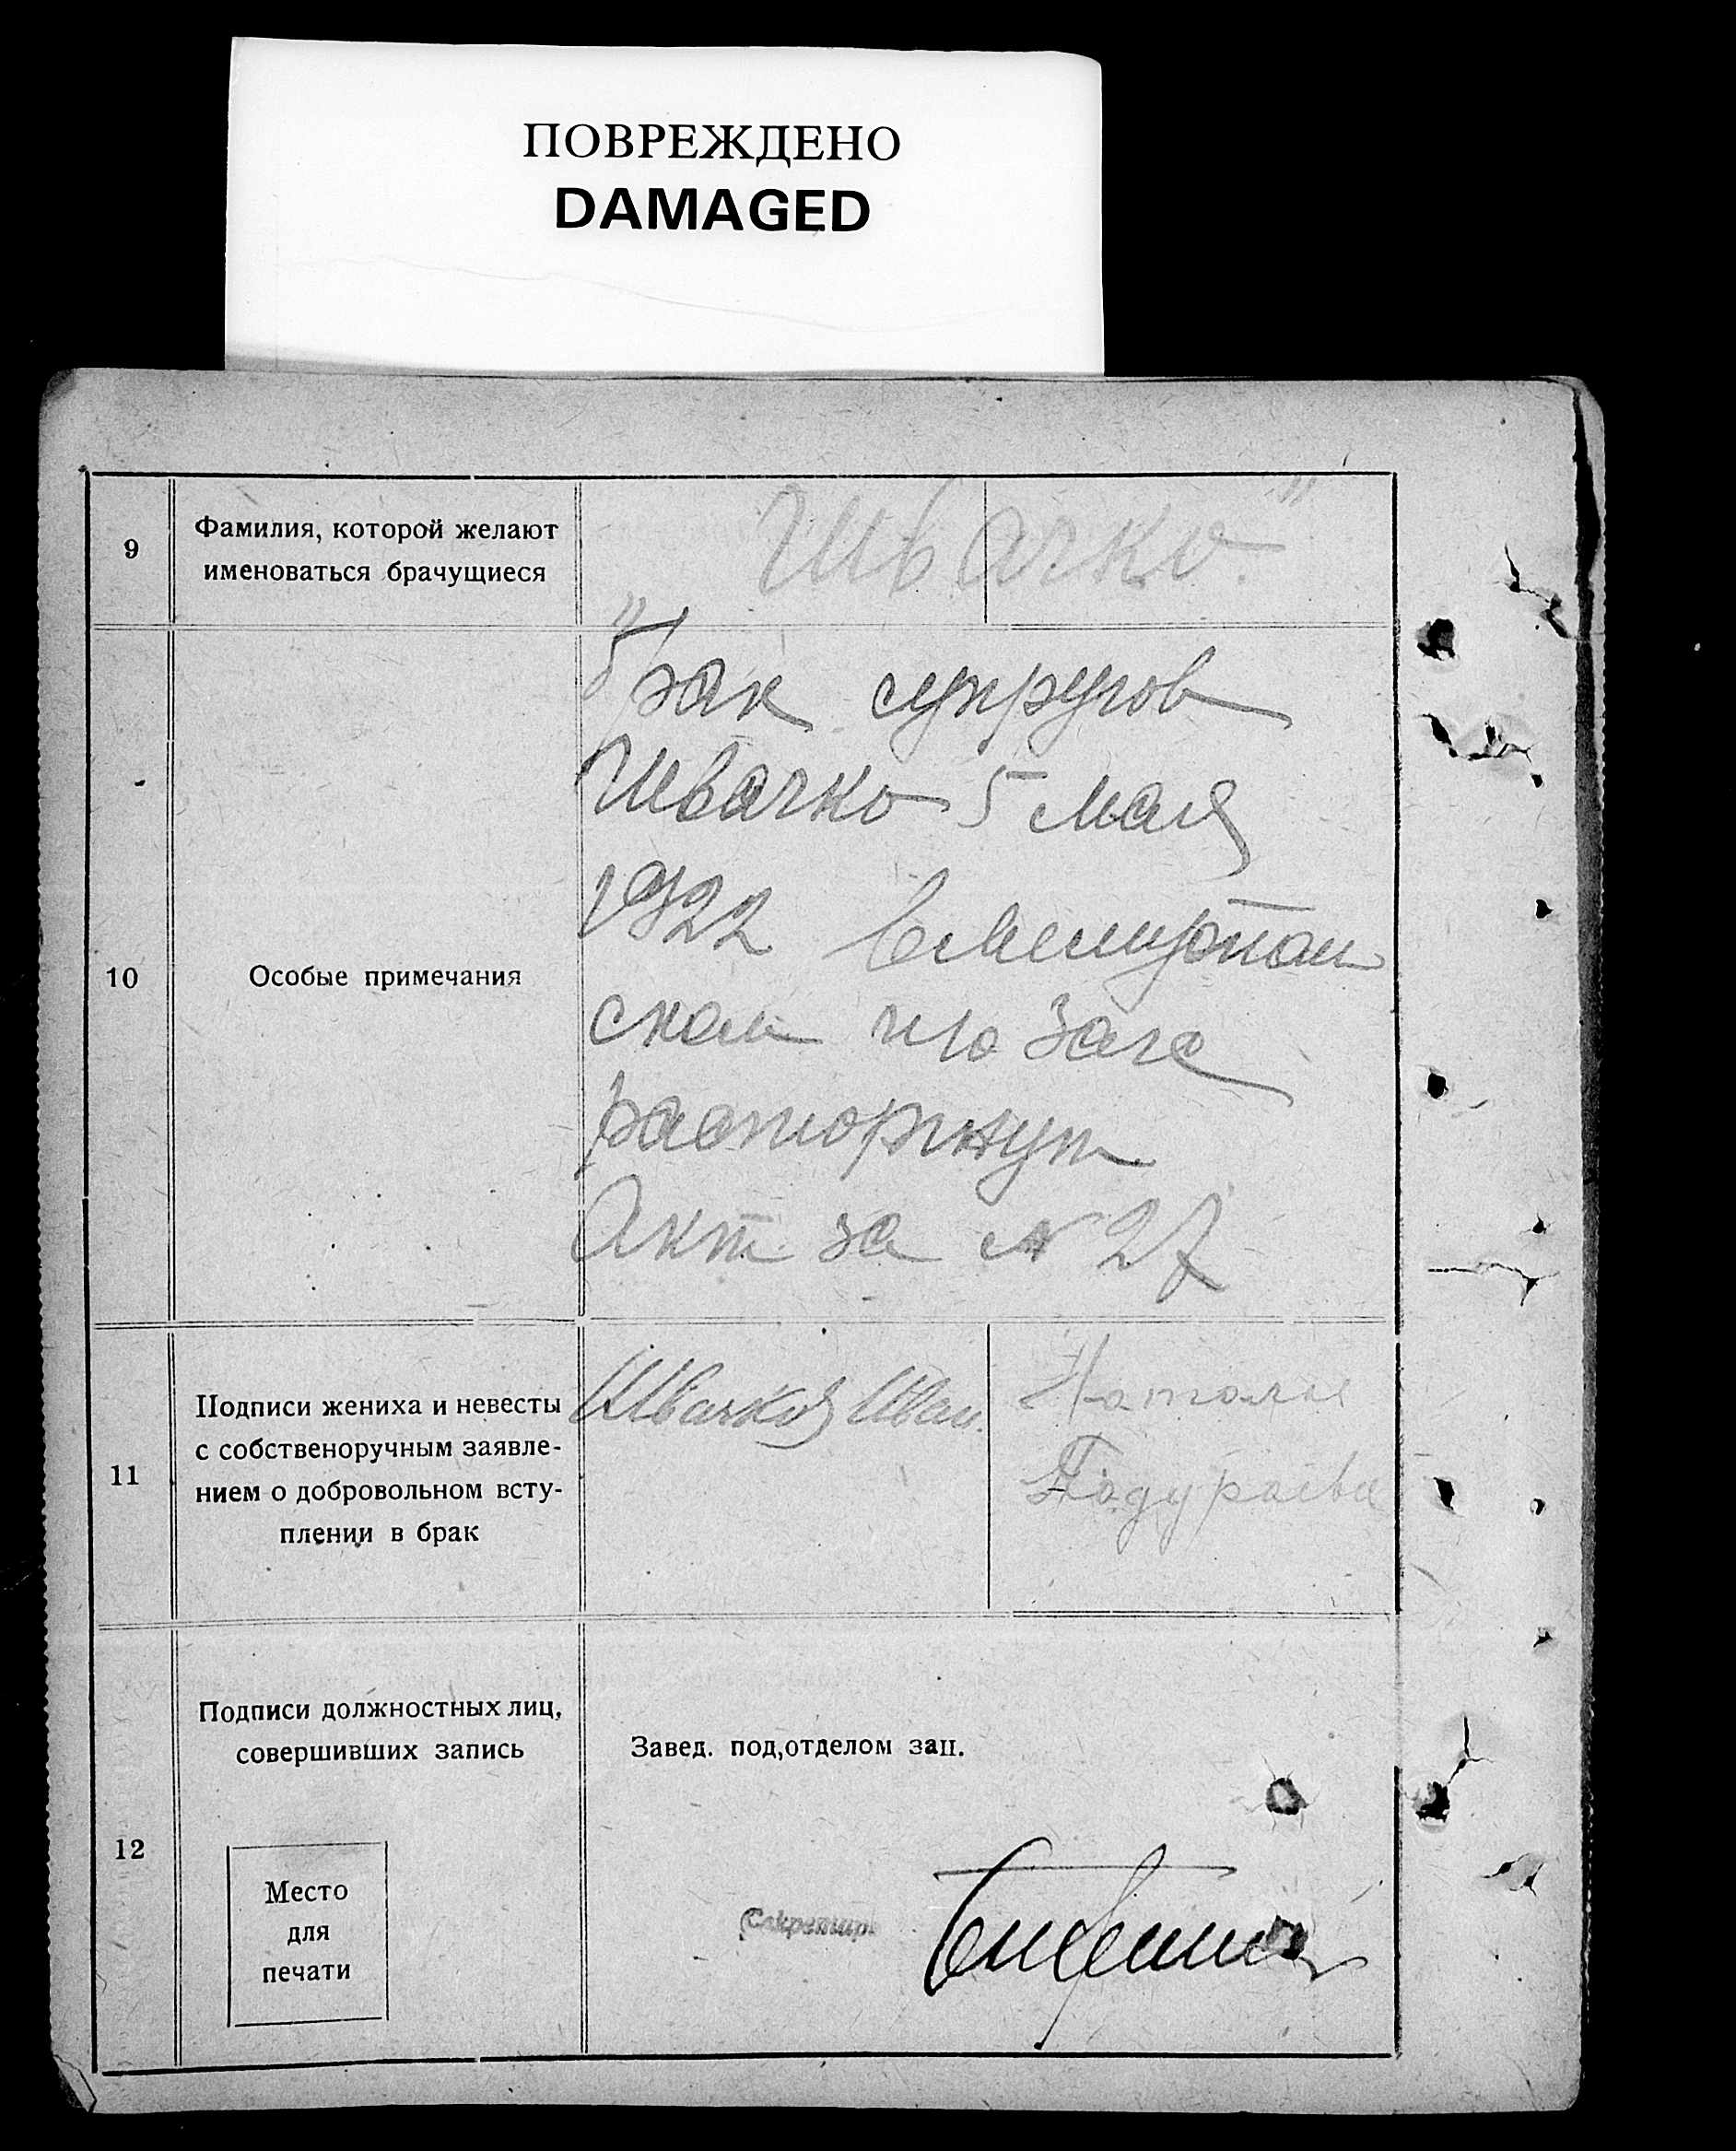 ПОВРЕЖДЕНО
DAMAGED
9
Фамилия, которой желают
именоваться брачущиеся
„Швачко“
10
Особые примечания
Брак супругов
Швачко 5 мая
1922
ском п/о Загс
расторгнут
Акт за № 27
11
Подписи жениха и невесты
с собственоручным заявле-
нием о добровольном всту-
плении в брак
Швачко Иван
Наталья
12
Подписи должностных лиц,
совершивших запись
Завед. под,отделом зап.
Секретарь
Место
для
печати